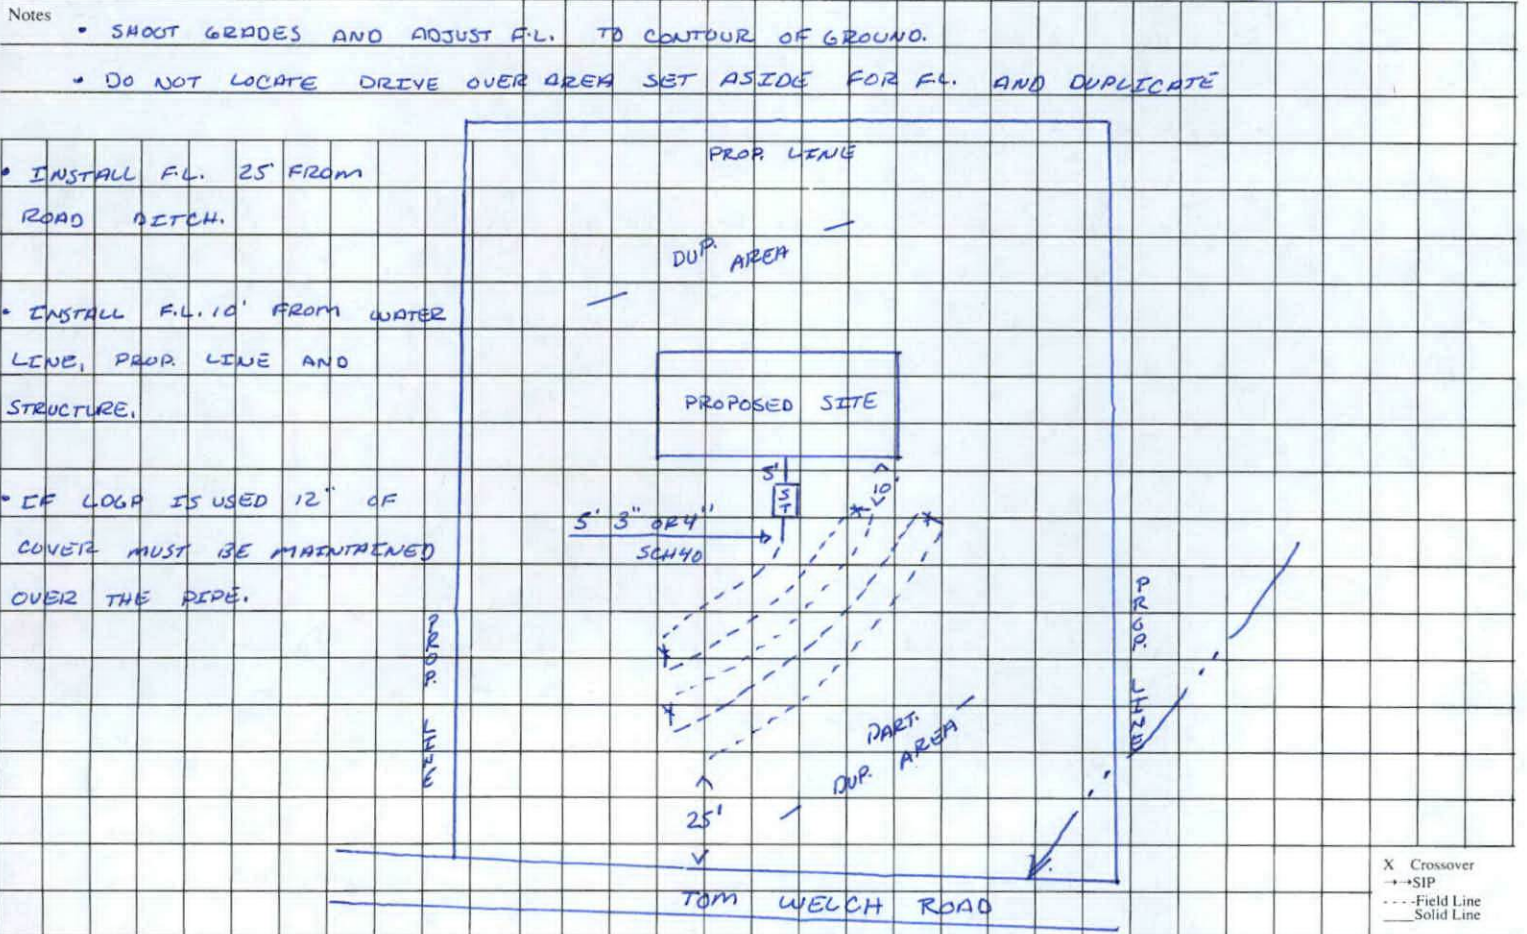 Notes
• SHOOT GRADES AND ADJUST F.L. TO CONTOUR OF GROUND.
• DO NOT LOCATE DRIVE OVER AREA SET ASIDE FOR F.L. AND DUPLICATE
PROP. LINE
• INSTALL F.L. 25' FROM
ROAD DITCH.
DUP. AREA
• INSTALL F.L. 10' FROM WATER
LINE, PROP. LINE AND
STRUCTURE.
PROPOSED SITE
5'
ST
10'
• IF LDGP IS USED 12" OF
COVER MUST BE MAINTAINED
OVER THE PIPE.
5' 3" OR 4"
SCH40
PROP. LINE
PROP. LINE
PART.
DUP. AREA
25'
TOM WELCH ROAD
X Crossover
SIP
Field Line
Solid Line